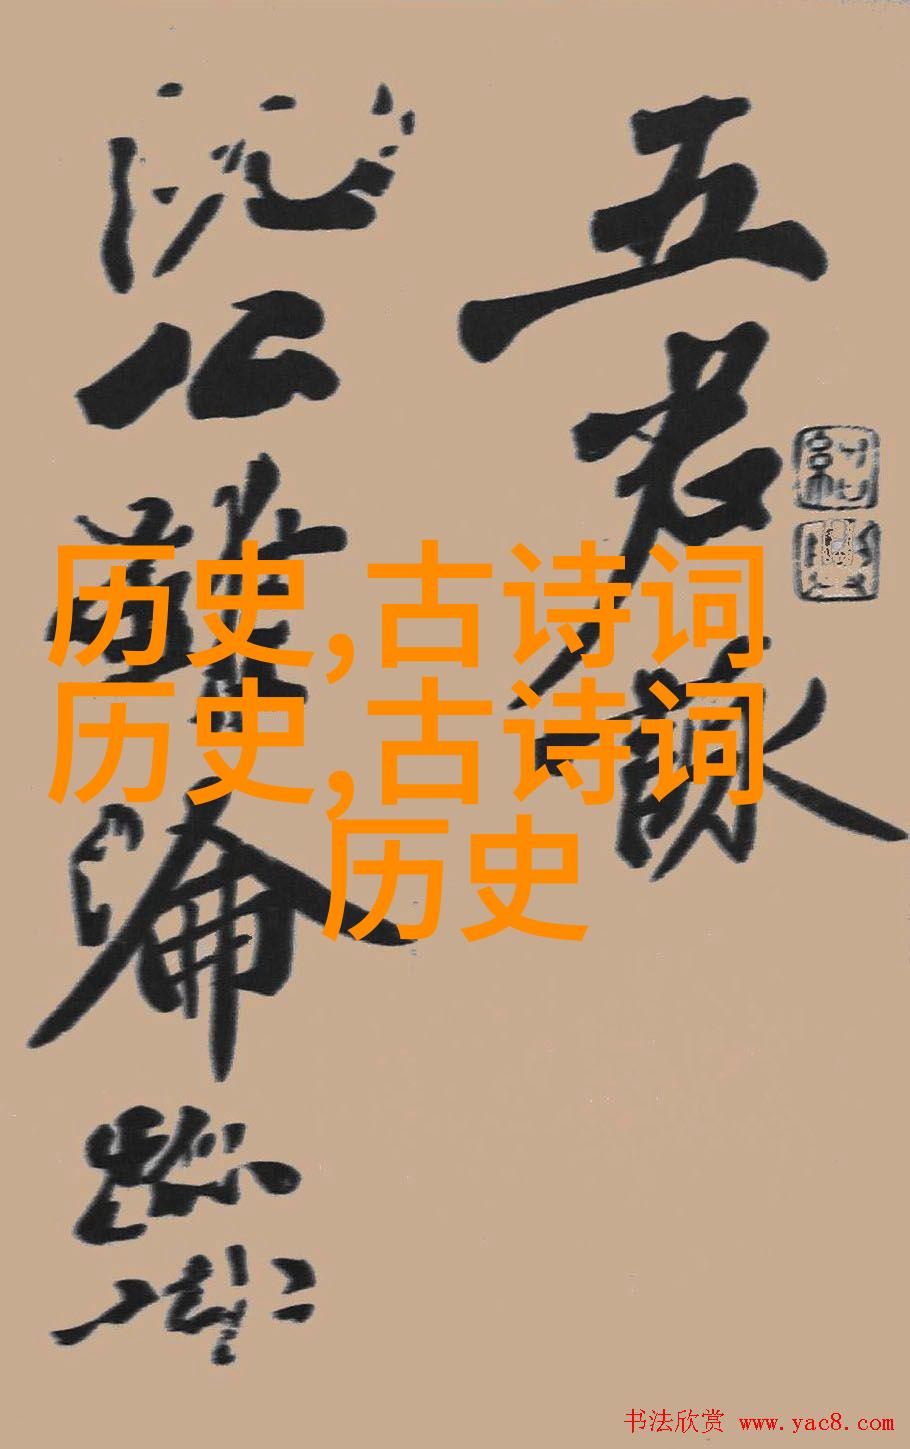 五君詠
阮公雖淪跡
历史,古诗词
历史,古诗词
历史
书法欣赏 www.yac8.com